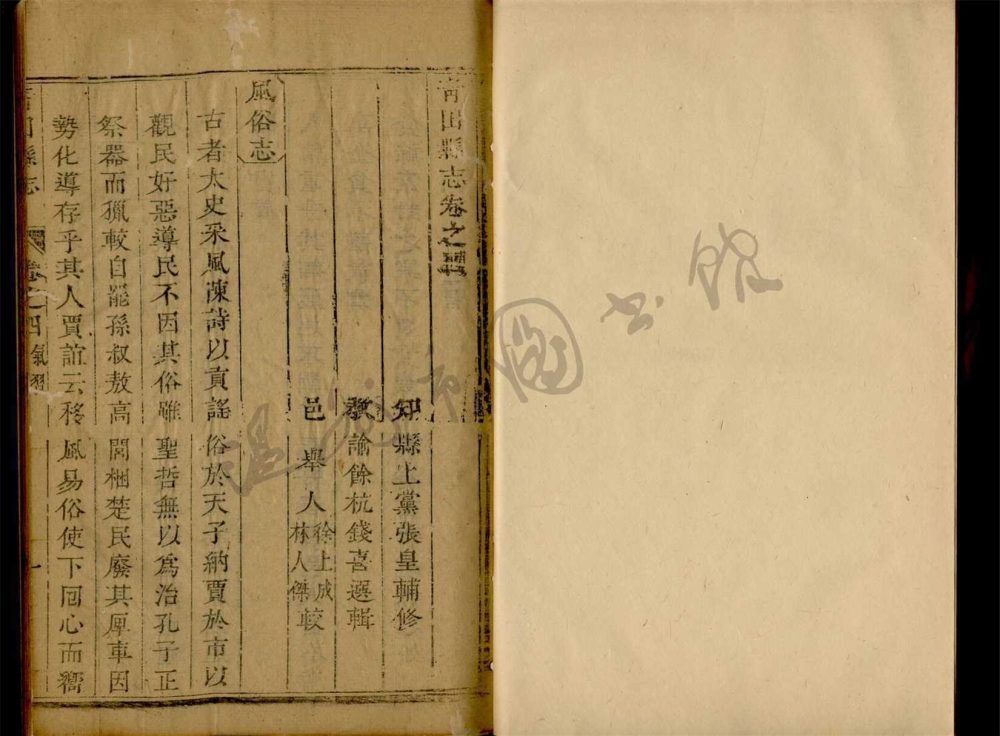 青田縣志卷之四
知縣上黨張皇輔修
教諭餘杭錢喜選輯
邑舉人徐上成
林人傑較
風俗志
古者太史采風陳詩以貢謠俗於天子納賈於市以
觀民好惡導民不因其俗雖聖哲無以為治孔子正
祭器而獵較自罷孫叔敖高閭梱楚民廢其庳車因
勢化導存乎其人賈誼云移風易俗使下回心而嚮
青田縣志
卷之四
一
圖書館